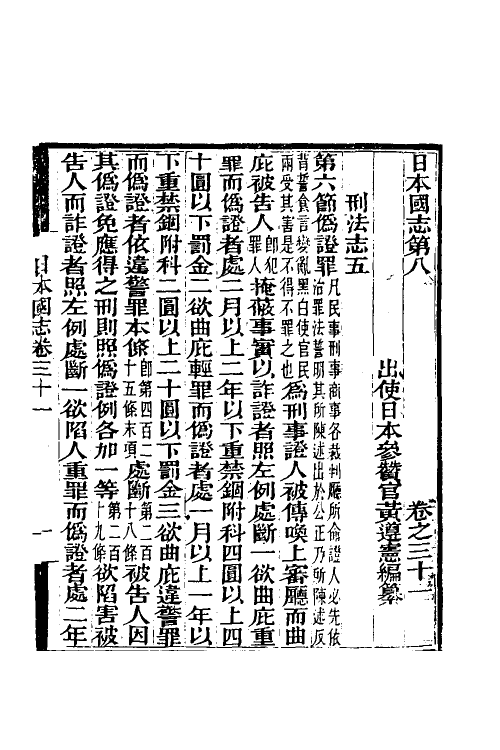 日本國志第八　卷之三十一
出使日本參贊官黃遵憲編纂
刑法志五
第六節僞證罪凡民事刑事商事各裁判廳所命證人必先依治罪法誓明其所陳述出於公正乃所陳述反
背誓食言變亂黑白使官民兩受其害是不得不罪之也爲刑事證人被傳喚上審廳而曲
庇被告人卽犯罪人掩蔽事實以詐證者照左例處斷一欲曲庇重
罪而僞證者處二月以上二年以下重禁錮附科四圓以上四
十圓以下罰金二欲曲庇輕罪而僞證者處一月以上一年以
下重禁錮附科二圓以上二十圓以下罰金三欲曲庇違警罪
而僞證者依違警罪本條卽第四百二十五條末項處斷第二百十八條被告人因
其僞證免應得之刑則照僞證例各加一等第二百十九條欲陷害被
告人而詐證者照左例處斷一欲陷人重罪而僞證者處二年
日本國志卷三十一　一